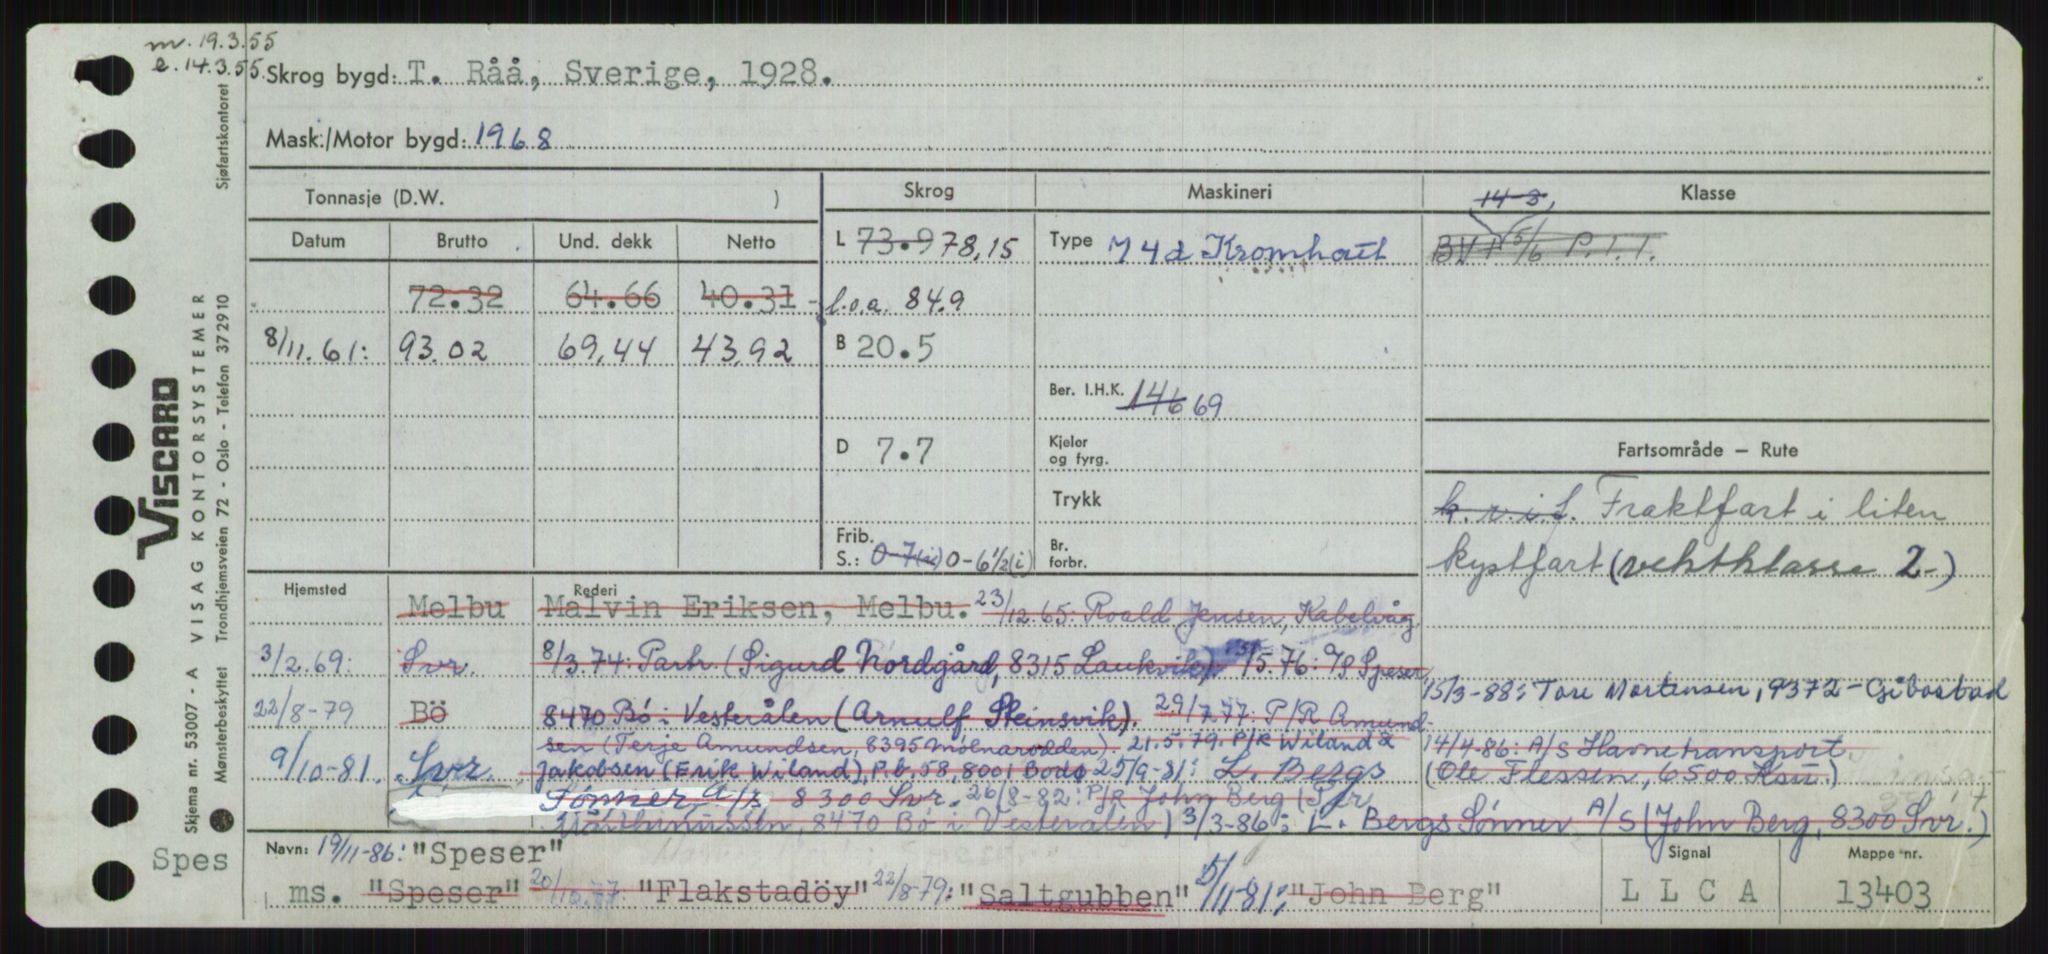 m. 19.3.55
e. 14.3.55.
Skrog bygd: T. Råå, Sverige, 1928.
Mask./Motor bygd: 1968
Tonnasje (D.W. )
Skrog
Maskineri
Klasse
14-3,
Datum Brutto Und. dekk Netto
L 73.9 78,15
Type 74d Kromhout
BV 1 5/6 P.I.I.
72.32 64.66 40.31
l.o.a. 84.9
8/11.61: 93.02 69,44 43,92
B 20.5
Ber. I.H.K. 146 69
D 7.7
Kjeler og fyrg.
Fartsområde – Rute
Trykk
k.v.i.f. Fraktfart i liten
Frib. S.: 0-7(i) 0-6 1/2(i)
Br. forbr.
kystfart (vektklasse 2-)
Hjemsted
Rederi
Melbu Malvin Eriksen, Melbu. 23/12.65: Roald Jensen, Kabelvåg
3/2.69: Svr. 8/3.74: Partr. (Sigurd Nordgård, 8315 Laukvik) 5.76: A/S Speser,
15/3-88: Tore Mortensen, 9372-Gibostad
22/8-79 Bö 8470 Bø i Vesterålen (Arnulf Steinsvik). 29/7.77: P/R Amund-
sen (Terje Amundsen, 8395 Mølnarodden). 21.5.79. P/R Wiland &
14/4-86: A/S Havnetransport
9/10-81. Svr. Jakobsen (Erik Wiland), P.b. 58, 8001 Bodø 25/9-81: L. Bergs
(Ole Flessen, 6500 Ksu.)
Sønner A/S 8300 Svr. 26/8-82: P/R John Berg (Per
Marthinussen, 8470 Bø i Vesterålen) 3/3-86: L. Bergs Sønner A/S (John Berg, 8300 Svr.)
Spes
Navn: 19/11-86: "Speser"
Signal
Mappe nr.
ms. "Speser" 20/10.77: "Flakstadöy" 22/8-79: "Saltgubben" 5/11-81: "John Berg"
L L C A
13403
Skjema nr. 53007 - A VISAG KONTORSYSTEMER
Mønsterbeskyttet Trondhjemsveien 72 - Oslo - Telefon 37 29 10 Sjøfartskontoret
VISCARD